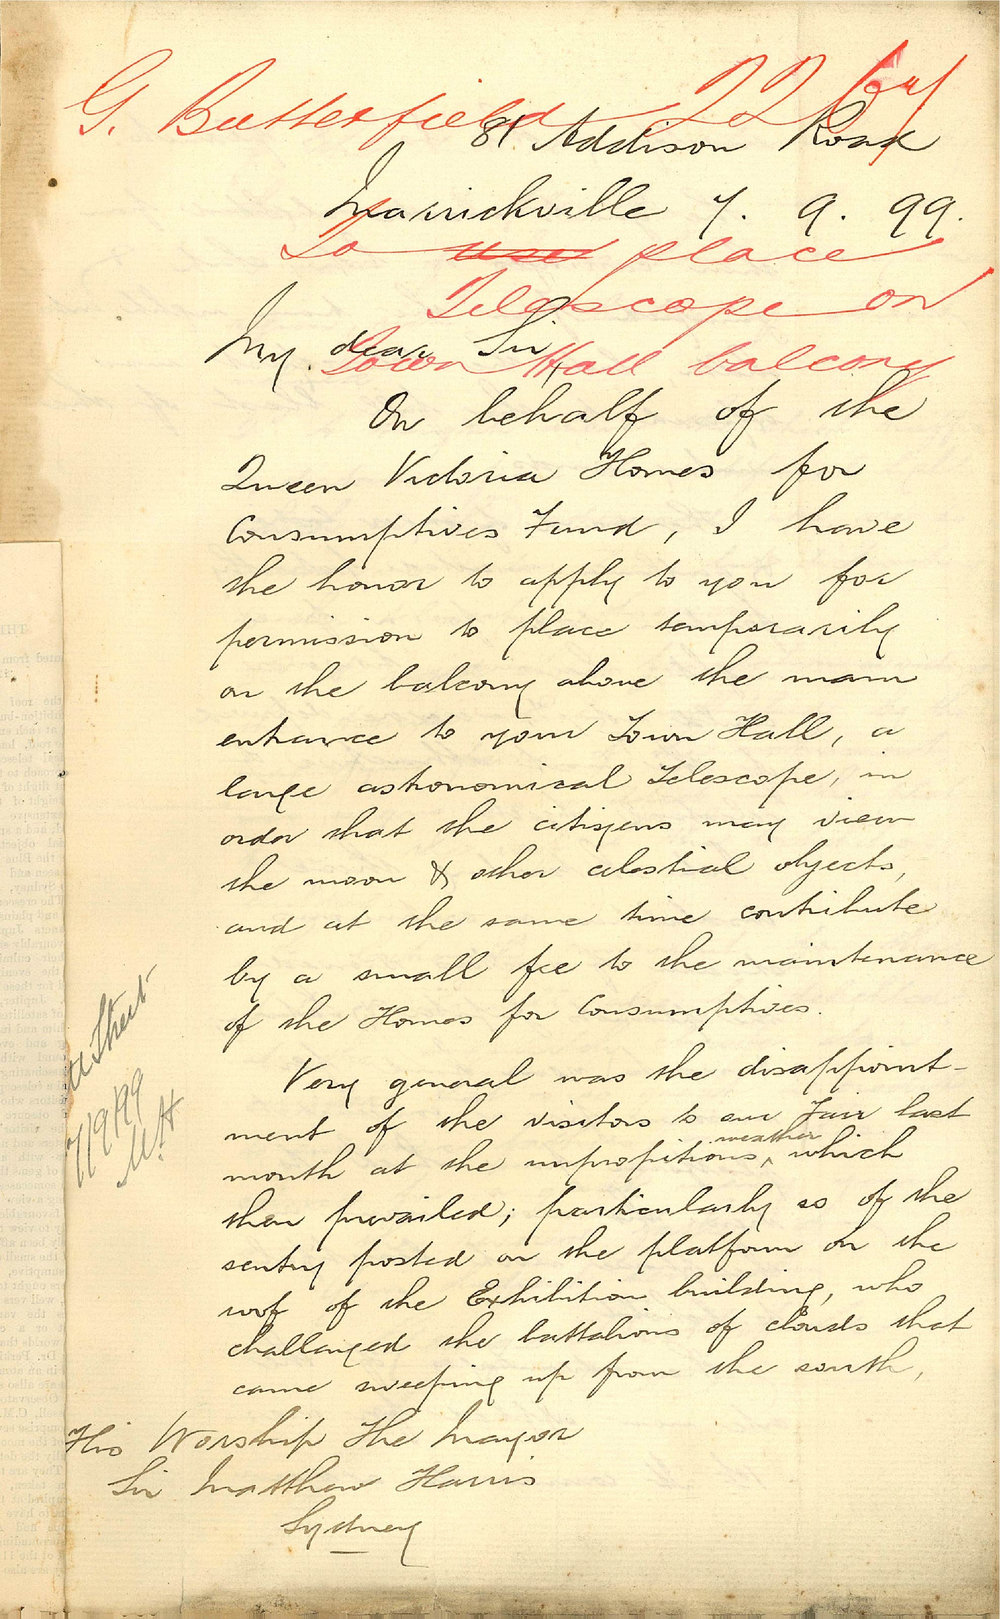 G. Butterfield
81 Addison Road
Marrickville 7. 9. 99.
To use place
Telescope on
Town Hall balcony
My dear Sir
On behalf of the
Queen Victoria Homes for
Consumptives Fund, I have
the honor to apply to you for
permission to place temporarily
on the balcony above the main
entrance to your Town Hall, a
large astronomical Telescope, in
order that the citizens may view
the moon & other celestial objects,
and at the same time contribute
by a small fee to the maintenance
of the Homes for Consumptives.
Very general was the disappoint-
ment of the visitors to our Fair last
month at the unpropitious weather, which
then prevailed; particularly so of the
sentry posted on the platform on the
roof of the Exhibition building, who
challenged the battalions of clouds that
came sweeping up from the south,
His Worship The Mayor
Sir Matthew Harris
Sydney
Street
7/9/99